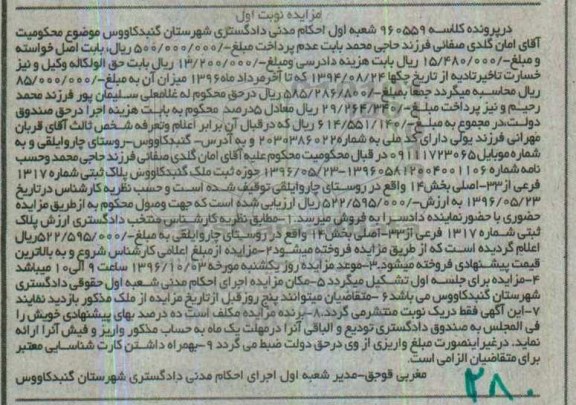 مزایده نوبت اول
درپرونده کلاسه ۹۶۰۵۵۹ شعبه اول احکام مدنی دادگستری شهرستان گنبدکاووس موضوع محکومیت
آقای امان گلدی صفائی فرزند حاجی محمد بابت عدم پرداخت مبلغ-/۵۰۰/۰۰۰/۰۰۰ ریال، بابت اصل خواسته
و مبلغ-/۱۵/۴۸۰/۰۰۰ بابت هزینه دادرسی ومبلغ-/۱۳/۲۰۰/۰۰۰ ریال بابت حق الوکاله وکیل و نیز
خسارت تاخیرتادیه از تاریخ چکها ۱۳۹۴/۰۸/۲۴ که تا آخرمرداد ماه۱۳۹۶ میزان آن به مبلغ-/۸۵/۰۰۰/۰۰۰
ریال محاسبه میگردد جمعا بمبلغ-/۵۸۵/۲۸۶/۸۰۰ ریال درحق محکوم له غلامعلی سلیمان پور فرزند محمد
رحیم و نیز پرداخت مبلغ-/۲۹/۲۶۴/۳۴۰ ریال معادل ۵درصد محکوم به بابت هزینه اجرا درحق صندوق
دولت،در مجموع به مبلغ-/۶۱۴/۵۵۱/۱۴۰ ریال که درقبال آن برابر اعلام وتعرفه شخص ثالث آقای قربان
مهرانی فرزند یولی دارای کد ملی به شماره۲۰۳۰۳۸۶۰۲۲ و به آدرس- گنبدکاووس-روستای چارواپلقی و به
شماره موبایل۰۹۱۱۱۷۲۳۰۶۵ در قبال محکومیت محکوم علیه آقای امان گلدی صفائی فرزند حاجی محمد وحسب
نامه شماره ۱۳۹۶۰۵۸۱۲۰۰۴۰۰۱۱۰۶-۱۳۹۶/۰۵/۲۳ حوزه ثبت ملک گنبدکاووس پلاک ثبتی شماره ۱۳۱۷
فرعی از۳۳-اصلی بخش۱۴ واقع در روستای چارواپلقی توقیف شده است و حسب نظریه کارشناس درتاریخ
۱۳۹۶/۰۵/۲۳ به ارزش-/۵۲۲/۵۹۵/۰۰۰ ریال ارزیابی شده است که جهت وصول محکوم به ازطریق مزایده
حضوری با حضور نماینده دادسرا به فروش میرسد.۱-مطابق نظریه کارشناس منتخب دادگستری ارزش پلاک
ثبتی شماره ۱۳۱۷ فرعی از۳۳-اصلی بخش۱۴ واقع در روستای چارواپلقی به مبلغ-/۵۲۲/۵۹۵/۰۰۰ریال
اعلام گردیده است که از طریق مزایده فروخته میشود۲-مزایده از مبلغ اعلامی کارشناس شروع و به بالاترین
قیمت پیشنهادی فروخته میشود.۳-موعد مزایده روز یکشنبه مورخه ۱۳۹۶/۱۰/۰۳ ساعت ۹ الی۱۰ میباشد
۴-مزایده برای جلسه اول تشکیل میگردد ۵-مکان مزایده اجرای احکام مدنی شعبه اول حقوقی دادگستری
شهرستان گنبدکاووس می باشد۶ -متقاضیان میتوانند پنج روز قبل ازتاریخ مزایده از ملک مذکور بازدید نمایند
۷-این آگهی فقط دریک نوبت منتشرمی گردد.۸-برنده مزایده مکلف است ده درصد بهای پیشنهادی خویش را
فی المجلس به صندوق دادگستری تودیع و الباقی آنرا درمهلت یک ماه به حساب مذکور واریز و فیش آنرا ارائه
نماید. درغیراینصورت مبلغ واریزی از وی درحق دولت ضبط می گردد ۹-بهمراه داشتن کارت شناسایی معتبر
برای متقاضیان الزامی است.
مغربی قوجق-مدیر شعبه اول اجرای احکام مدنی دادگستری شهرستان گنبدکاووس
۲۸۰